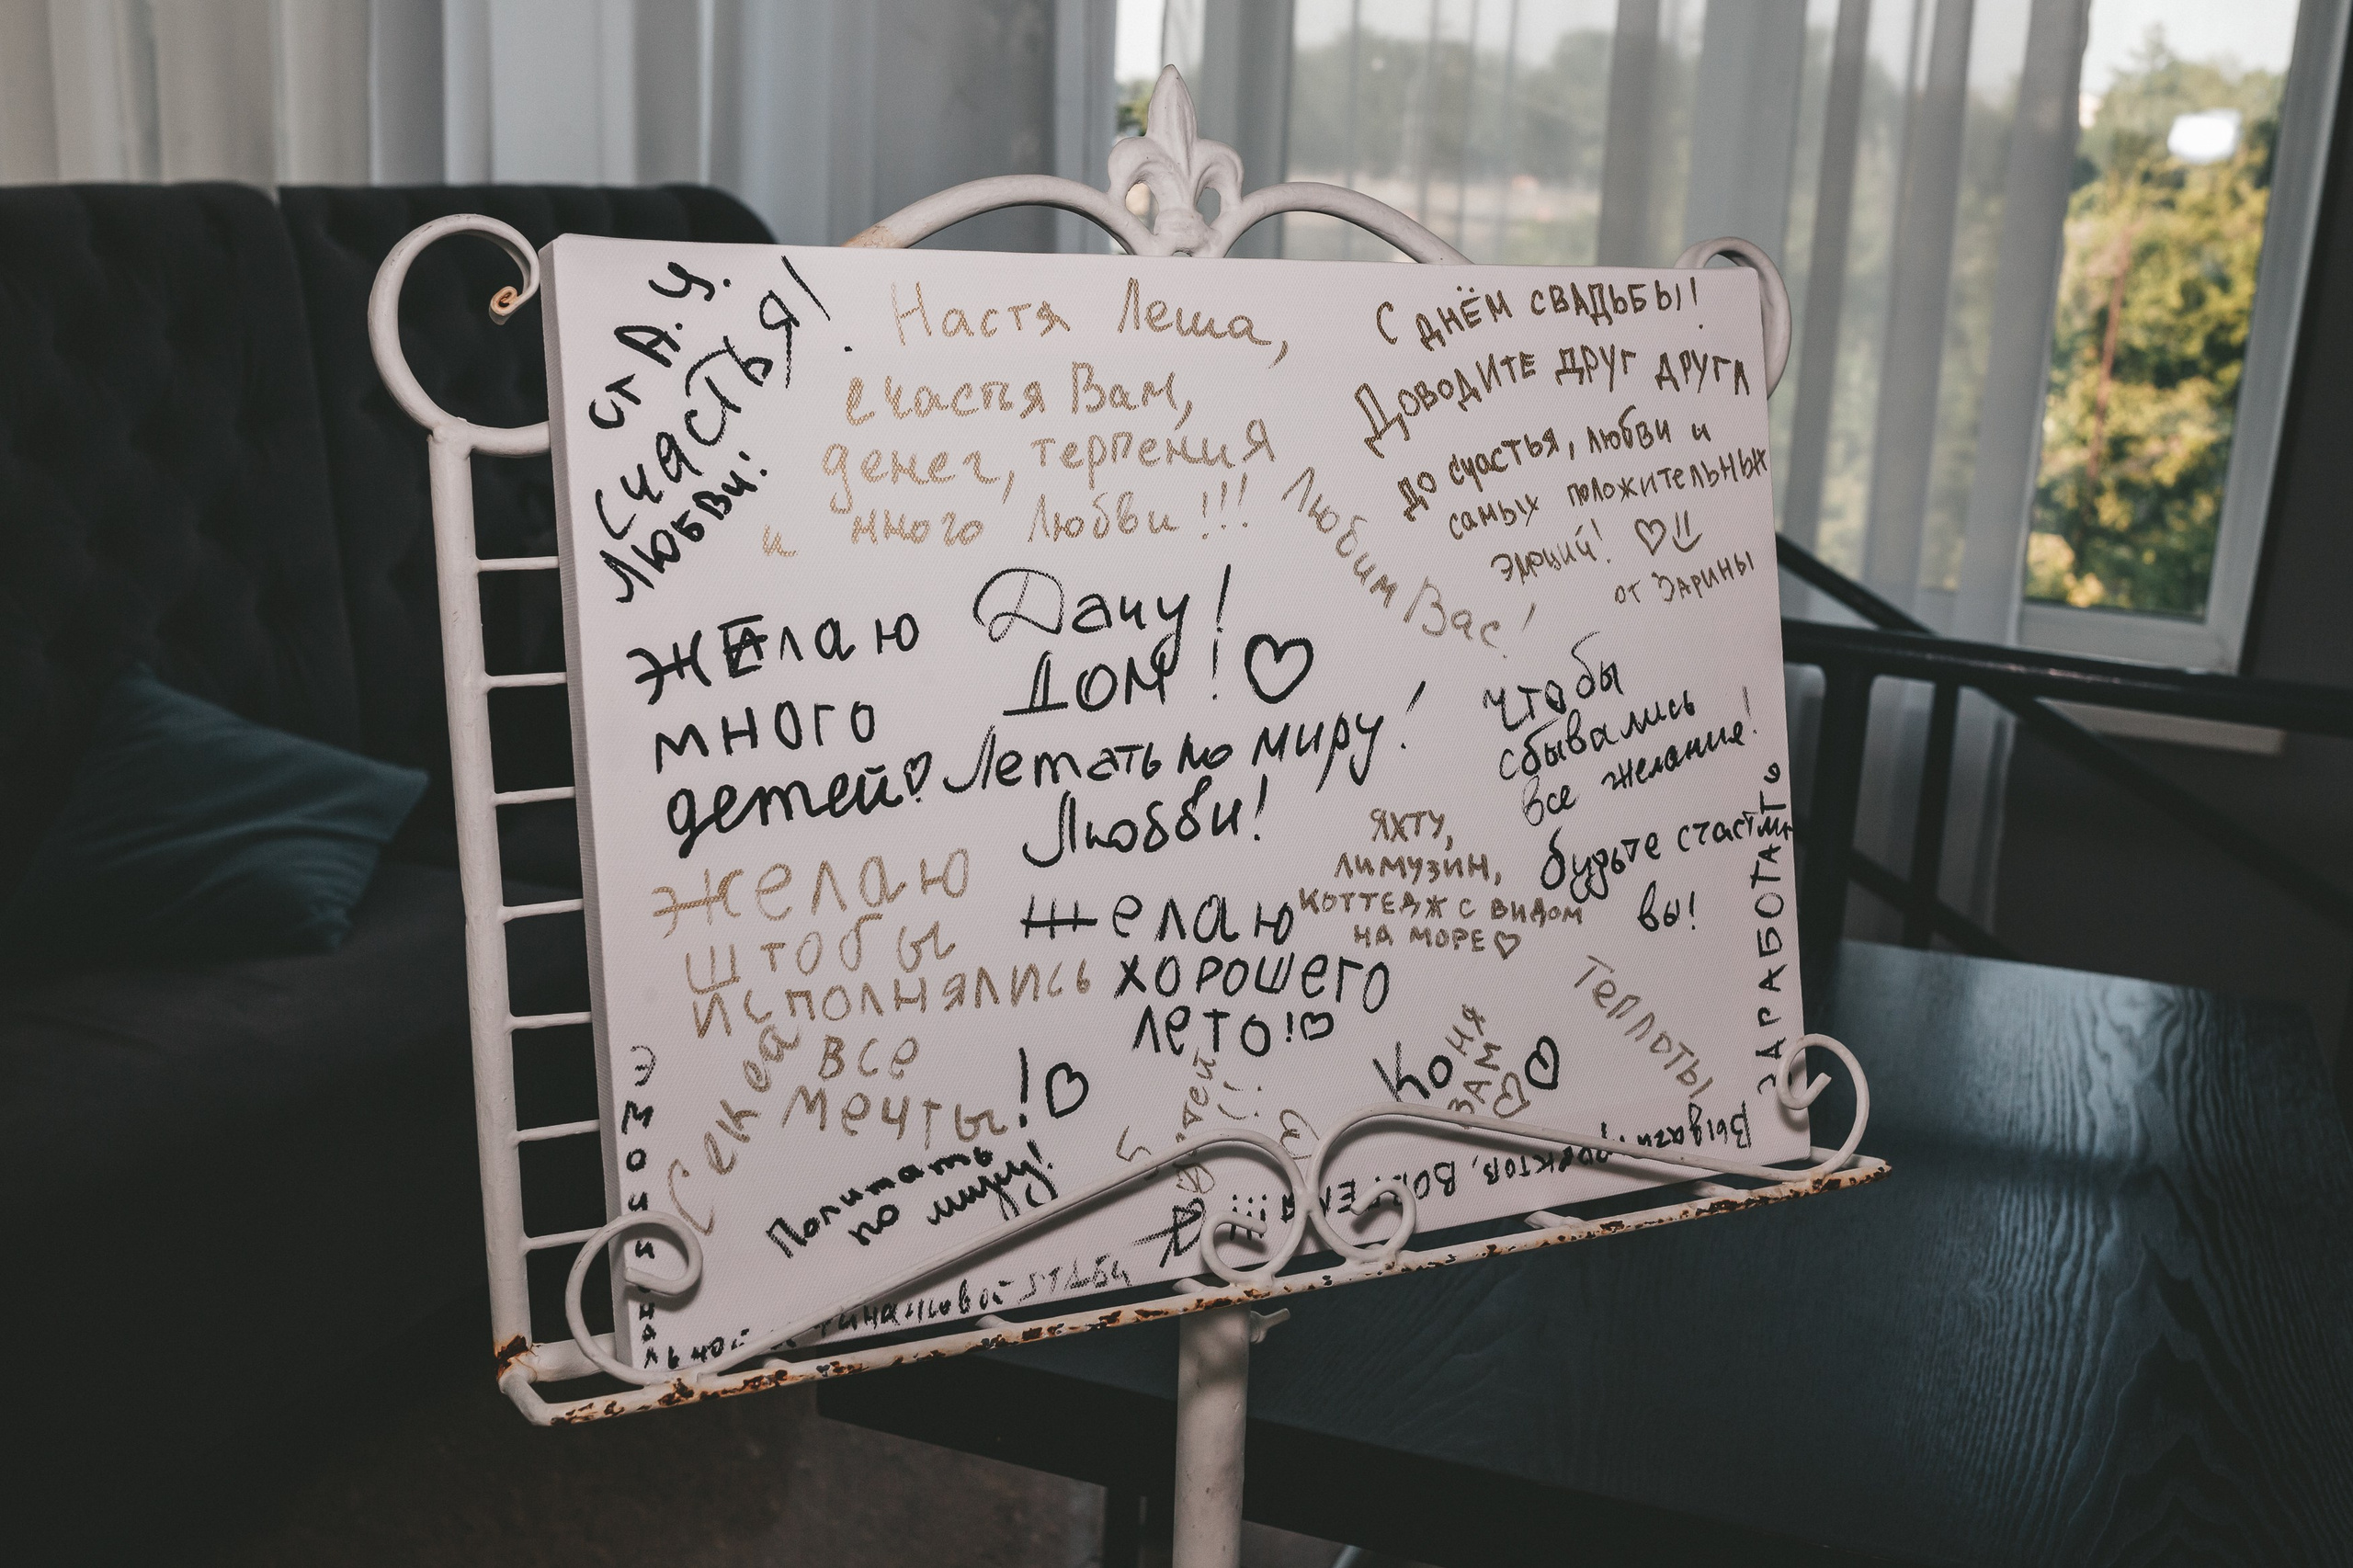 от А. Я.
Счастья!
Любви!
Настя Леша,
счастья Вам,
денег, терпения
и много Любви!!!
С ДНЁМ СВАДЬБЫ!
ДОВОДИТЕ ДРУГ ДРУГА
до счастья, любви и
самых положительных
эмоций! ♡
от ЗАРИНЫ
Любим Вас!
ЖЕлаю
много
детей♡
Дачу!
ДОМ! ♡
Летать по миру!
Любви!
чтобы
сбывались
все желание!
будьте счастли
вы!
ЯХТУ,
ЛИМУЗИН,
КОТТЕДЖ С ВИДОМ
НА МОРЕ♡
Желаю
штобы
исполнялись
все
мечты!♡
Желаю
хорошего
лето!♡
Теплоты
ЗАРАБОТАТЬ
Коня
ВАМ
♡
Секса
Попитать
по миру!
5
Эмоциональной
финансовой